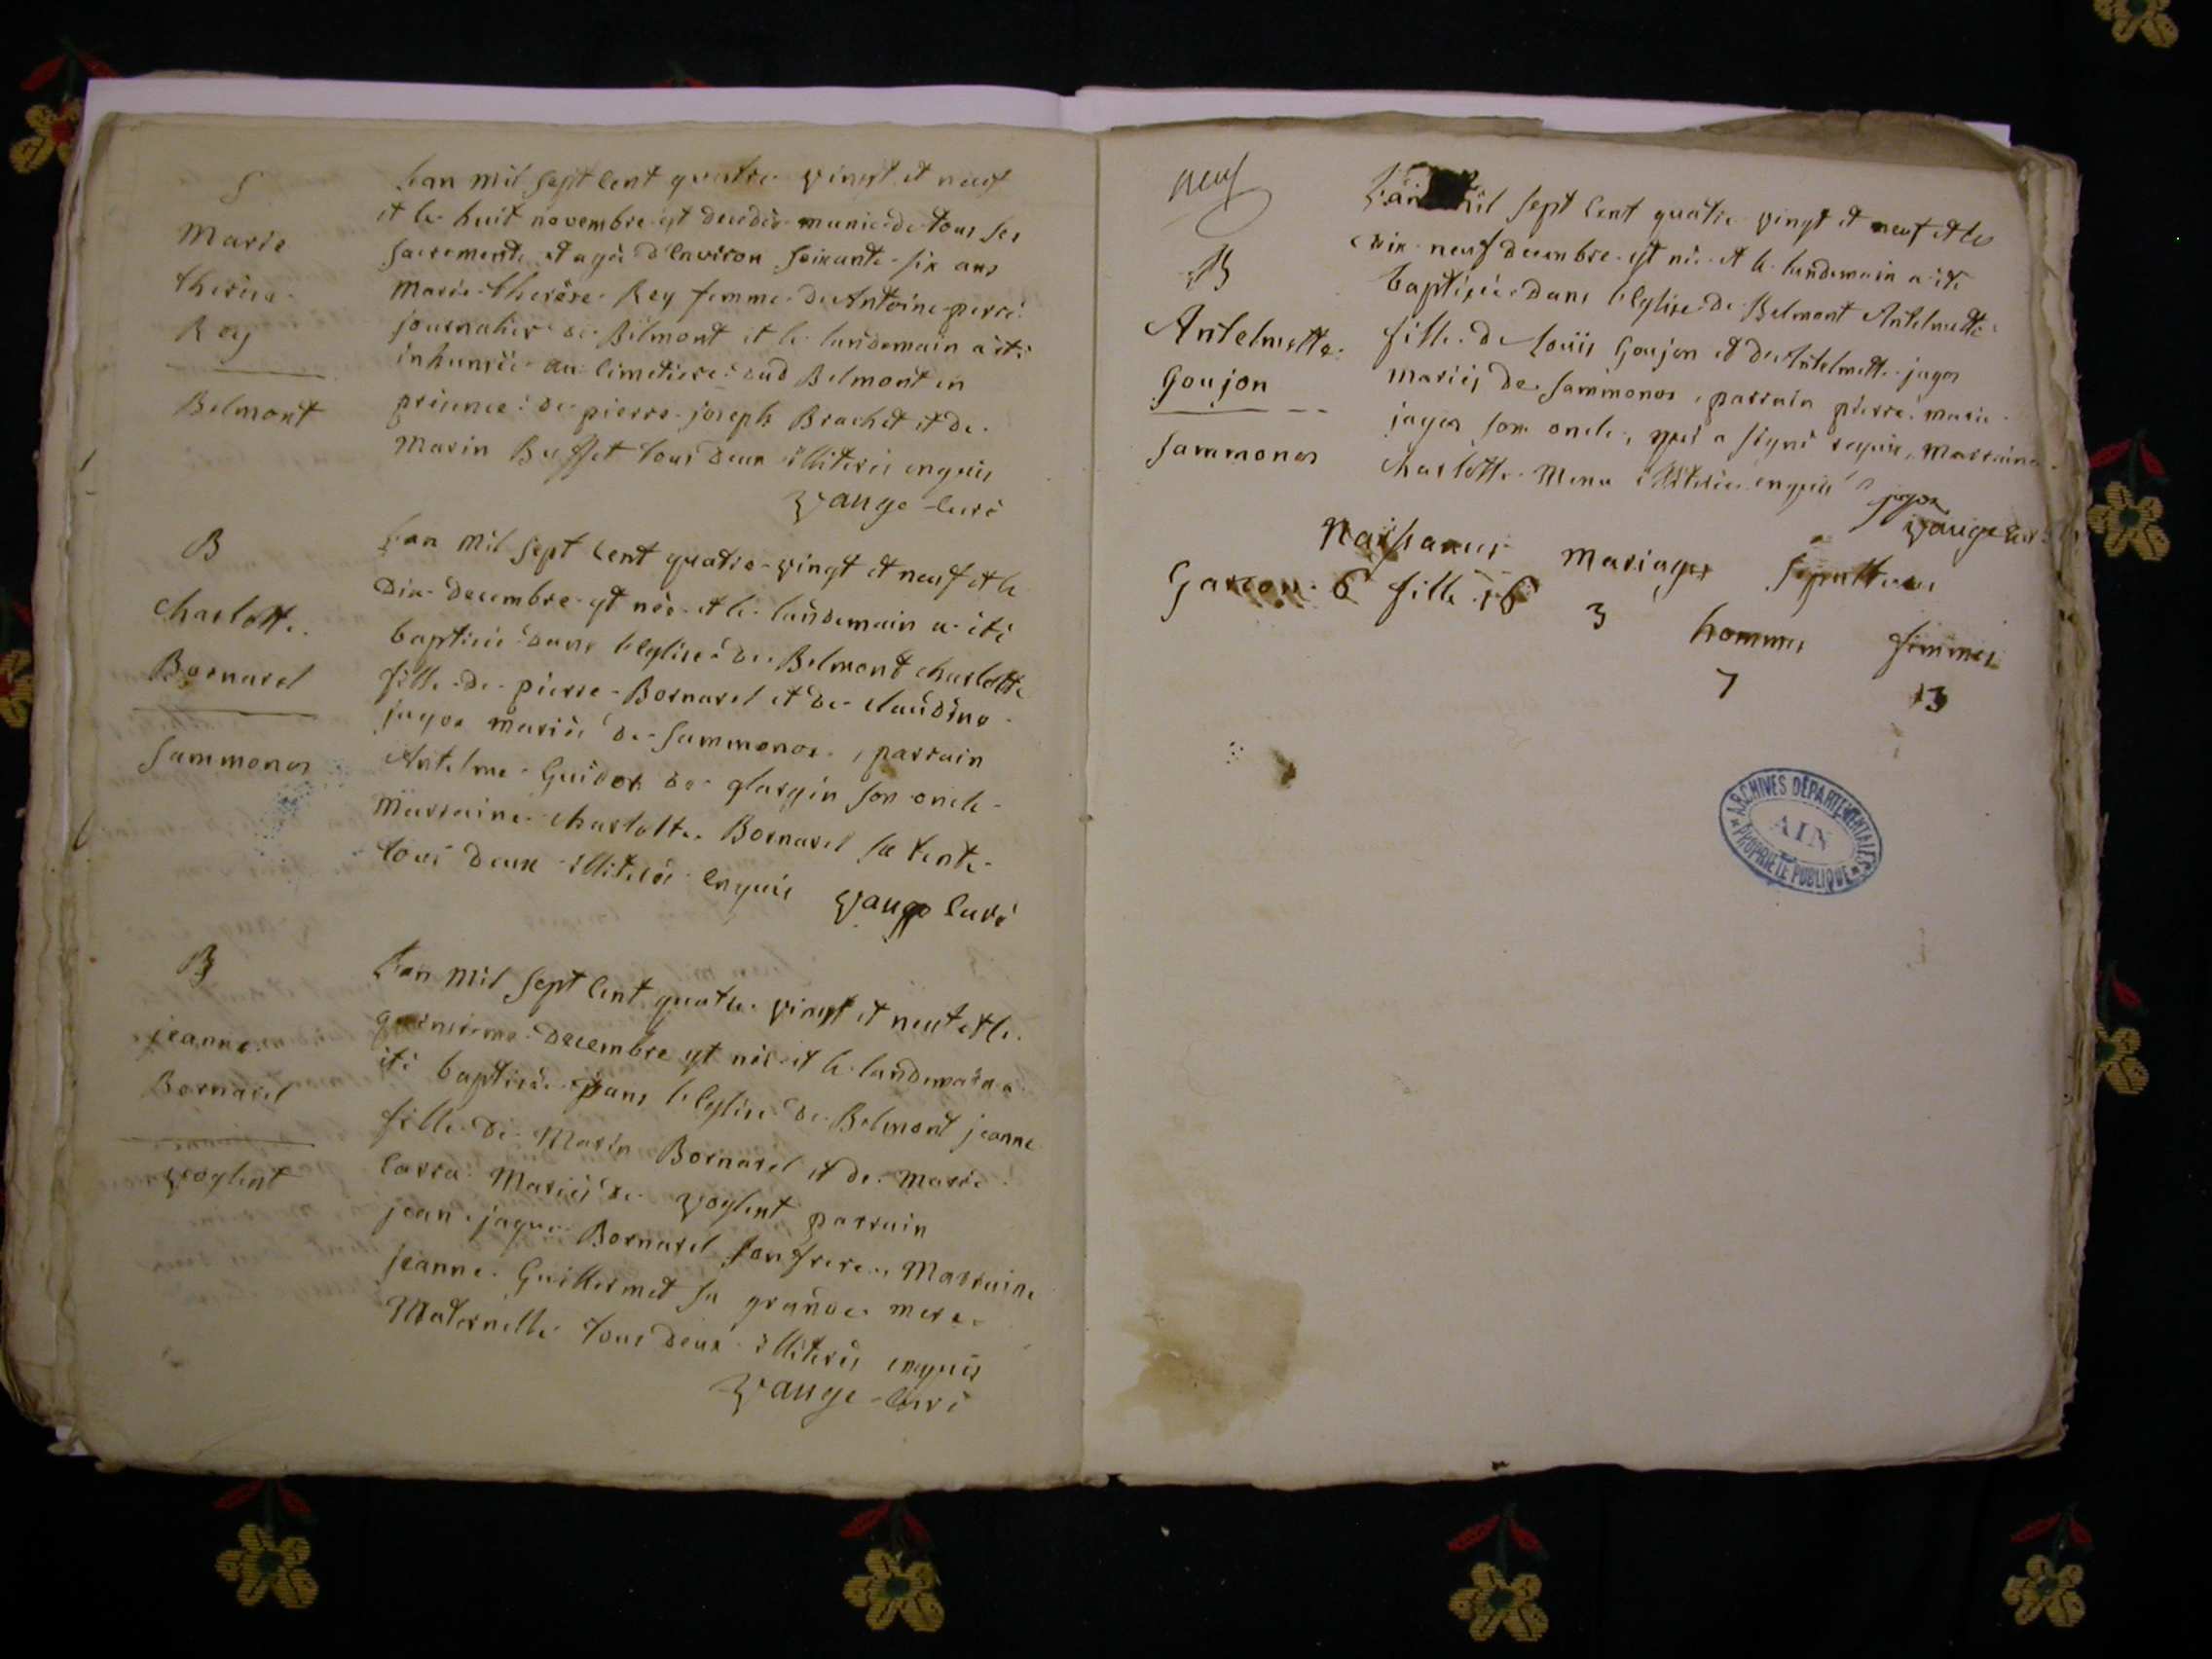 S
Marie
therese
Rey
Belmont
Lan mil sept cent quatre vingt et neuf
et le huit novembre est decedée munie de tous ses
sacrements et agée d'Environ soixante six ans
Marie therèse Rey femme de Antoine perré
journalier de Belmont et le landemain a été
inhumée au cimetiere dud Belmont en
présence de pierre joseph Brachet et de
Marin Buffet tous deux illiterés enquis
Vauge curé
B
charlotte
Bornarel
sammonos
Lan mil sept cent quatre vingt et neuf et le
dix decembre est née et le landemain a été
baptisée dans l'eglise de Belmont charlotte
fille de pierre Bornarel et de claudine
jagos mariés de sammonos, parrain
Antelme Guidot de glargin son oncle
marraine charlotte Bornarel sa tente
tous deux illiterés enquis Vauge curé
B
jeanne
Bornarel
voglent
Lan mil sept cent quatre vingt et neuf et le
quinsieme decembre est née et le landemain a
été baptisée dans l'eglise de Belmont jeanne
fille de Marin Bornarel et de Marie
Carra Mariés de voglent parrain
jean jaque Bornarel son frere, Marraine
jeanne Guillermet sa grande mere
Maternelle tous deux illiterés enquis
Vauge curé
neuf
B
Antelmette
Goujon
sammonos
Lan mil sept cent quatre vingt et neuf et le
dix neuf decembre est née et le landemain a été
baptisée dans l'eglise de Belmont Antelmette
fille de Louis Goujon et de Antelmette jagos
mariés de sammonos, parrain pierre marie
jagos son oncle, qui a signé requis, marraine
charlotte Menu illiterée enquise
jagos
Vauge curé
Naissances mariages sepultures
Garcon 6 fille 16 3 hommes femmes
7 13
ARCHIVES DÉPARTEMENTALES
AIN
PROPRIÉTÉ PUBLIQUE